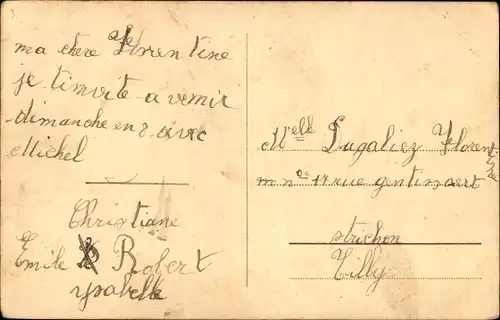 ma chere Florentine
je t'invite a venir
dimanche en 8 avec
Michel
Christiane
Emile Robert
ysabelle
Melle Dugaliez Florentine
rue gentissart
strichon
Tilly